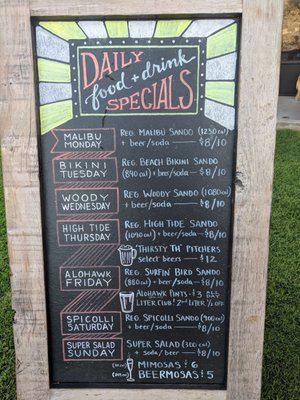 DAILY
food + drink
SPECIALS
MALIBU MONDAY
REG. MALIBU SANDO (1230 cal)
+ beer/soda — $8/10
BIKINI TUESDAY
REG. BEACH BIKINI SANDO
(840 cal) + beer/soda — $8/10
WOODY WEDNESDAY
REG. WOODY SANDO (1080 cal)
+ beer/soda — $8/10
HIGH TIDE THURSDAY
REG. HIGH TIDE SANDO
(1090 cal) + beer/soda — $8/10
THIRSTY TH' PITCHERS
select beers — $12
ALOHAWK FRIDAY
REG. SURFIN' BIRD SANDO
(880 cal) + beer/soda — $8/10
ALOHAWK PINTS - $3 ALL DAY
LITER CLUB! 2nd LITER ½ OFF
SPICOLLI SATURDAY
REG. SPICOLLI SANDO (900 cal)
+ beer/soda — $8/10
SUPER SALAD SUNDAY
SUPER SALAD (300 cal)
+ soda/beer — $8/10
MIMOSAS $6
BEERMOSAS $5